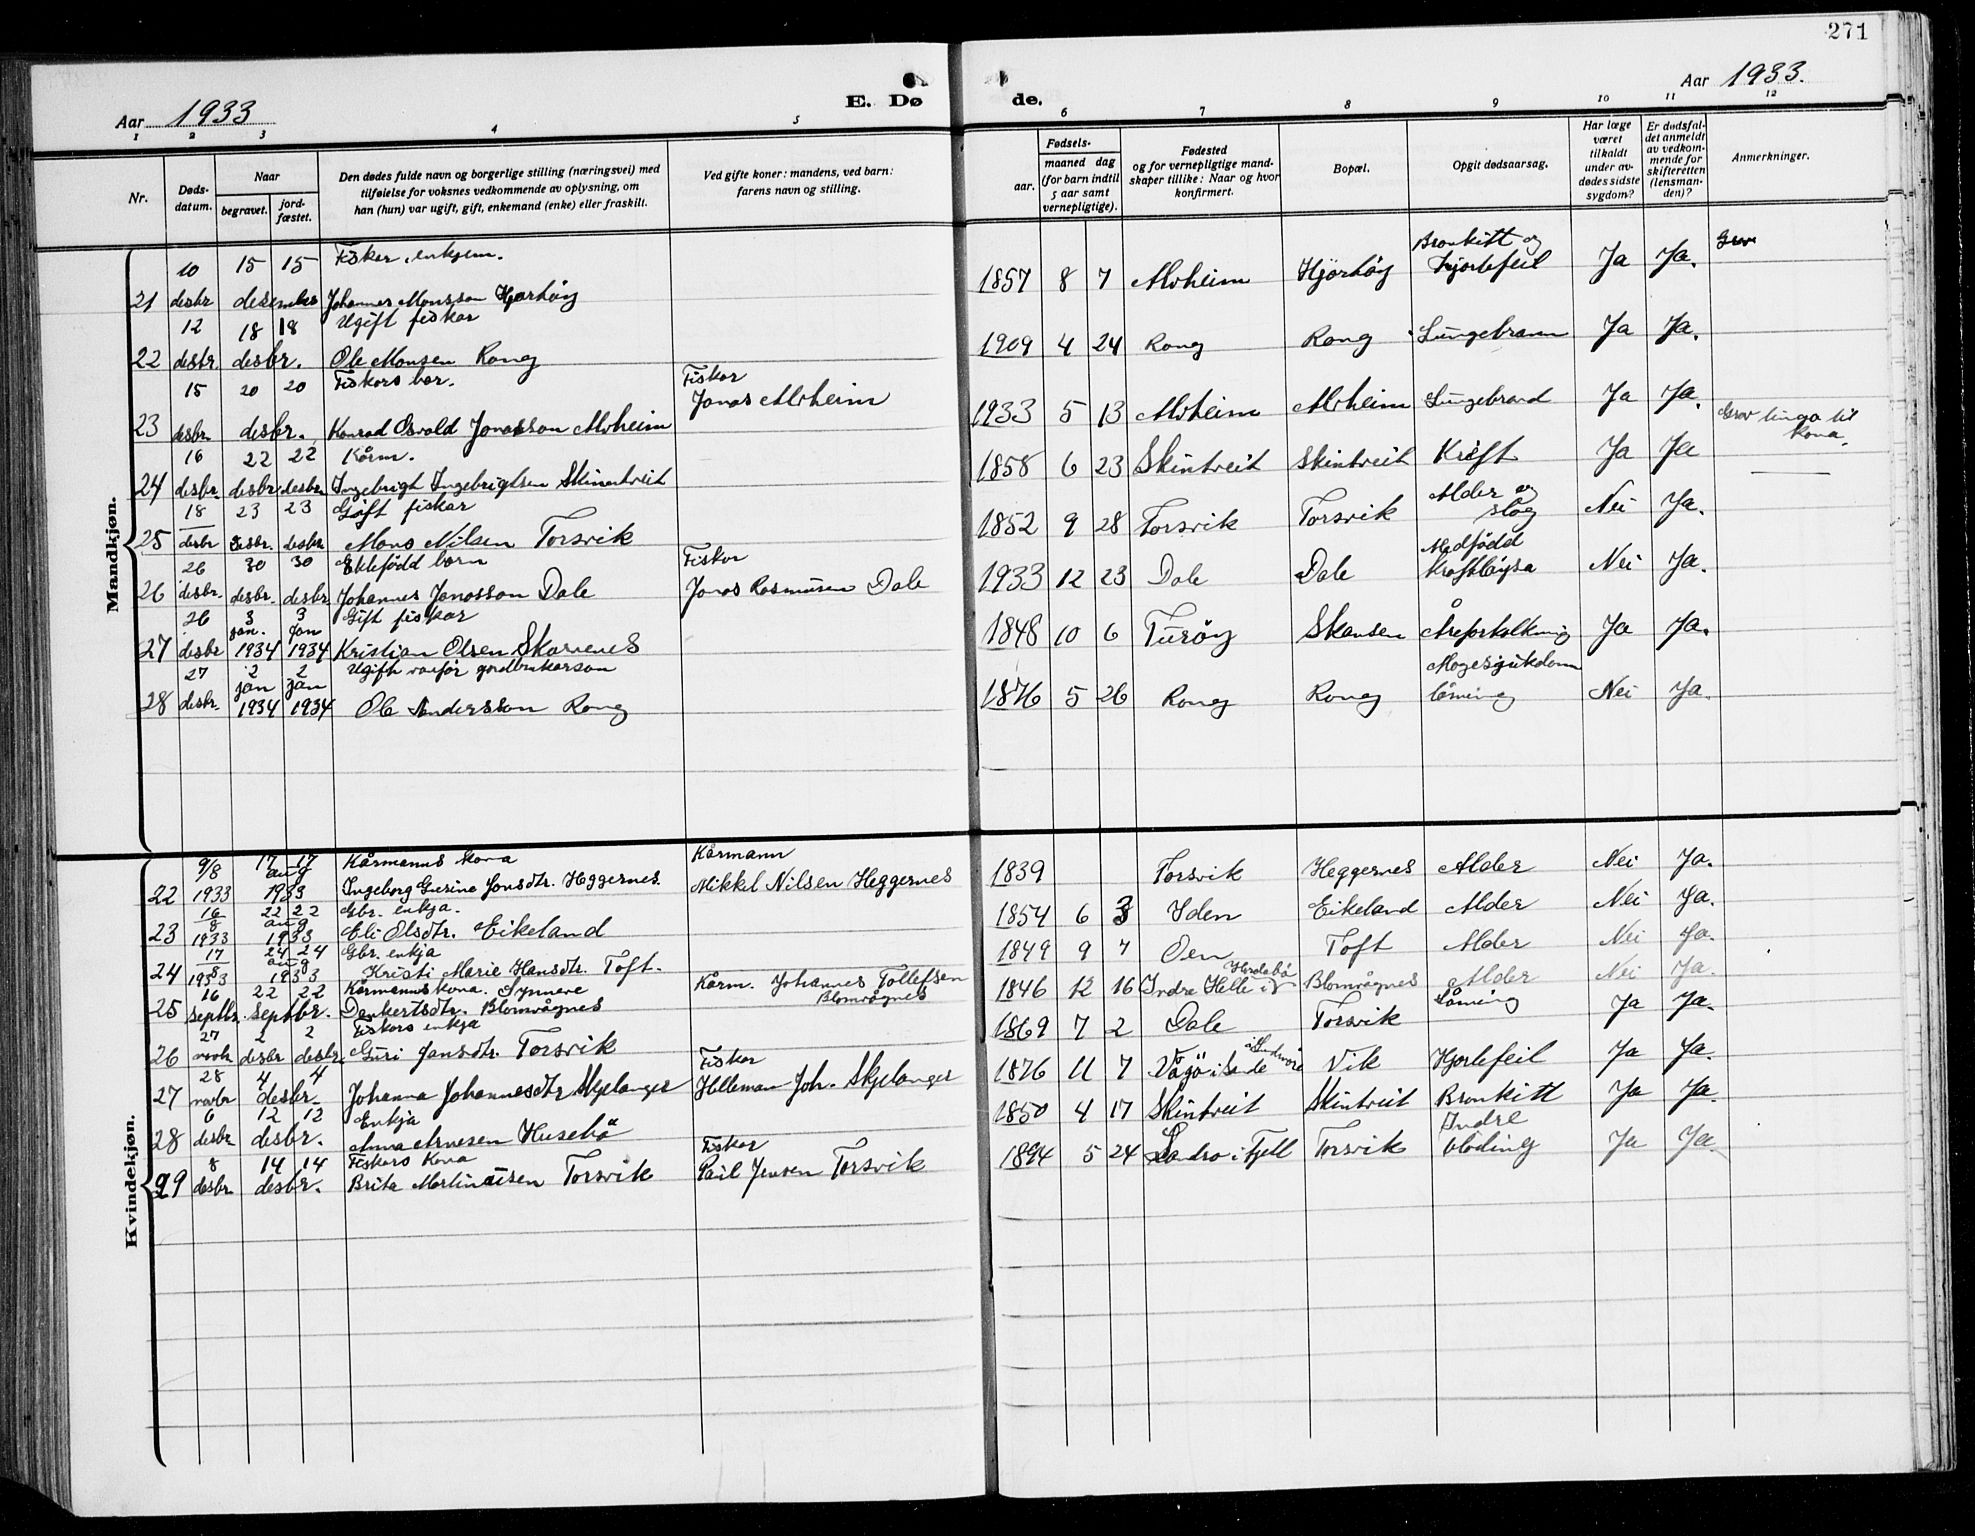 271
Aar 1933
E. Dø
de.
Aar 1933.
1 2 3 4 5 6 7 8 9 10 11 12
Nr.
Døds-
datum.
Naar
begravet.
jord-
fæstet.
Den dødes fulde navn og borgerlige stilling (næringsvei) med
tilføielse for voksnes vedkommende av oplysning, om
han (hun) var ugift, gift, enkemand (enke) eller fraskilt.
Ved gifte koner: mandens, ved barn:
farens navn og stilling.
Fødsels-
aar.
maaned dag
(for barn indtil
5 aar samt
vernepligtige).
Fødested
og for vernepligtige mand-
skaper tillike: Naar og hvor
konfirmert.
Bopæl.
Opgit dødsaarsag.
Har læge
været
tilkaldt
under av-
dødes sidste
sygdom?
Er dødsfal-
det anmeldt
av vedkom-
mende for
skifteretten
(lensman-
den)?
Anmerkninger.
Mandkjøn.
10 15 15 Fisker, enkjem. Bronkitt og Grav
21 desbr desember Johannes Monsson Hjørhøy 1857 8 7 Alvheim Hjørhøy Hjortefeil Ja Ja.
12 18 18 Ugift fiskar
22 desbr. desbr. Ole Monsen Rong 1909 4 24 Rong Rong Lungebrann Ja Ja.
15 20 20 Fiskars bar. Fiskar
23 desbr. desbr. Konrad Osvald Jonasson Alvheim Jonas Alvheim 1933 5 13 Alvheim Alvheim Lungebrand Ja Ja.
16 22 22 Kårm. Grav tinga til
kona.
24 desbr. desbr. desbr. Ingebrigt Ingebrigtsen Skintveit 1858 6 23 Skintveit Skintveit Kreft Ja Ja
18 23 23 Gift fiskar Alder og
25 desbr desbr. desbr Mons Nilsen Torsvik 1852 9 28 Torsvik Torsvik slag Nei Ja.
26 30 30 Ektefødd barn Fiskar Medfødd
26 desbr. desbr. desbr. Johannes Jonasson Dale Jonas Rasmusen Dale 1933 12 23 Dale Dale kraftløysa Nei Ja.
26 3 3 Gift fiskar
jan. Jan
27 desbr 1934 1934 Kristian Olsen Skarvenes 1848 10 6 Turøy Skansen Åreforkalkning Ja Ja.
27 2 2 Ugift vanfør gardbrukarson Magesjukdom
jan jan
28 desbr. 1934 1934 Ole Andersson Rong 1876 5 26 Rong Rong låming Nei Ja.
Kvindekjøn.
9/8 17 17 Kårmanns kona Kårmann
aug
22 1933 1933 Ingeborg Gurine Jonsdtr. Heggernes. Mikkel Nilsen Heggernes 1839 Torsvik Heggernes Alder Nei Ja.
16 22 22 Gbr. enkja.
8 aug
23 1933 1933 Eli Olsdtr. Eikeland 1854 6 3 Yden Eikeland Alder Nei Ja.
17 24 24 Gbr. enkja
8 aug
24 1933 1933 Kristi Marie Hansdtr. Toft. 1849 9 7 Oen Toft Alder Nei Ja.
16 22 22 Kårmannskona. Synneve Kårm. Johannes Tollefsen Herdabø
25 septbr. septbr. Dankertsdtr. Blomvågnes Blomvågnes 1846 12 16 Indre Helle i Blomvågnes Alder Nei Ja.
27 2 2 Fiskars enkja
26 novbr desbr desbr. Guri Jansdtr. Torsvik 1869 7 2 Dale Torsvik Låming Ja Ja.
28 4 4 Fiskar
27 novbr desbr. Johanna Johannesdtr Skjelanger Helleman Joh. Skjelanger 1876 11 7 Vik Hjortefeil Ja Ja.
6 12 12 Enkja
28 desbr desbr. Anna Arnesen Husebø 1850 4 17 Skintveit Skintveit Bronkitt Ja Ja.
8 14 14 Fiskars Kona Fiskar Indre
29 desbr. desbr. Brita Martinusen Torsvik Paul Jensen Torsvik 1894 5 24 Landro i Fjell Torsvik bløding Ja Ja.